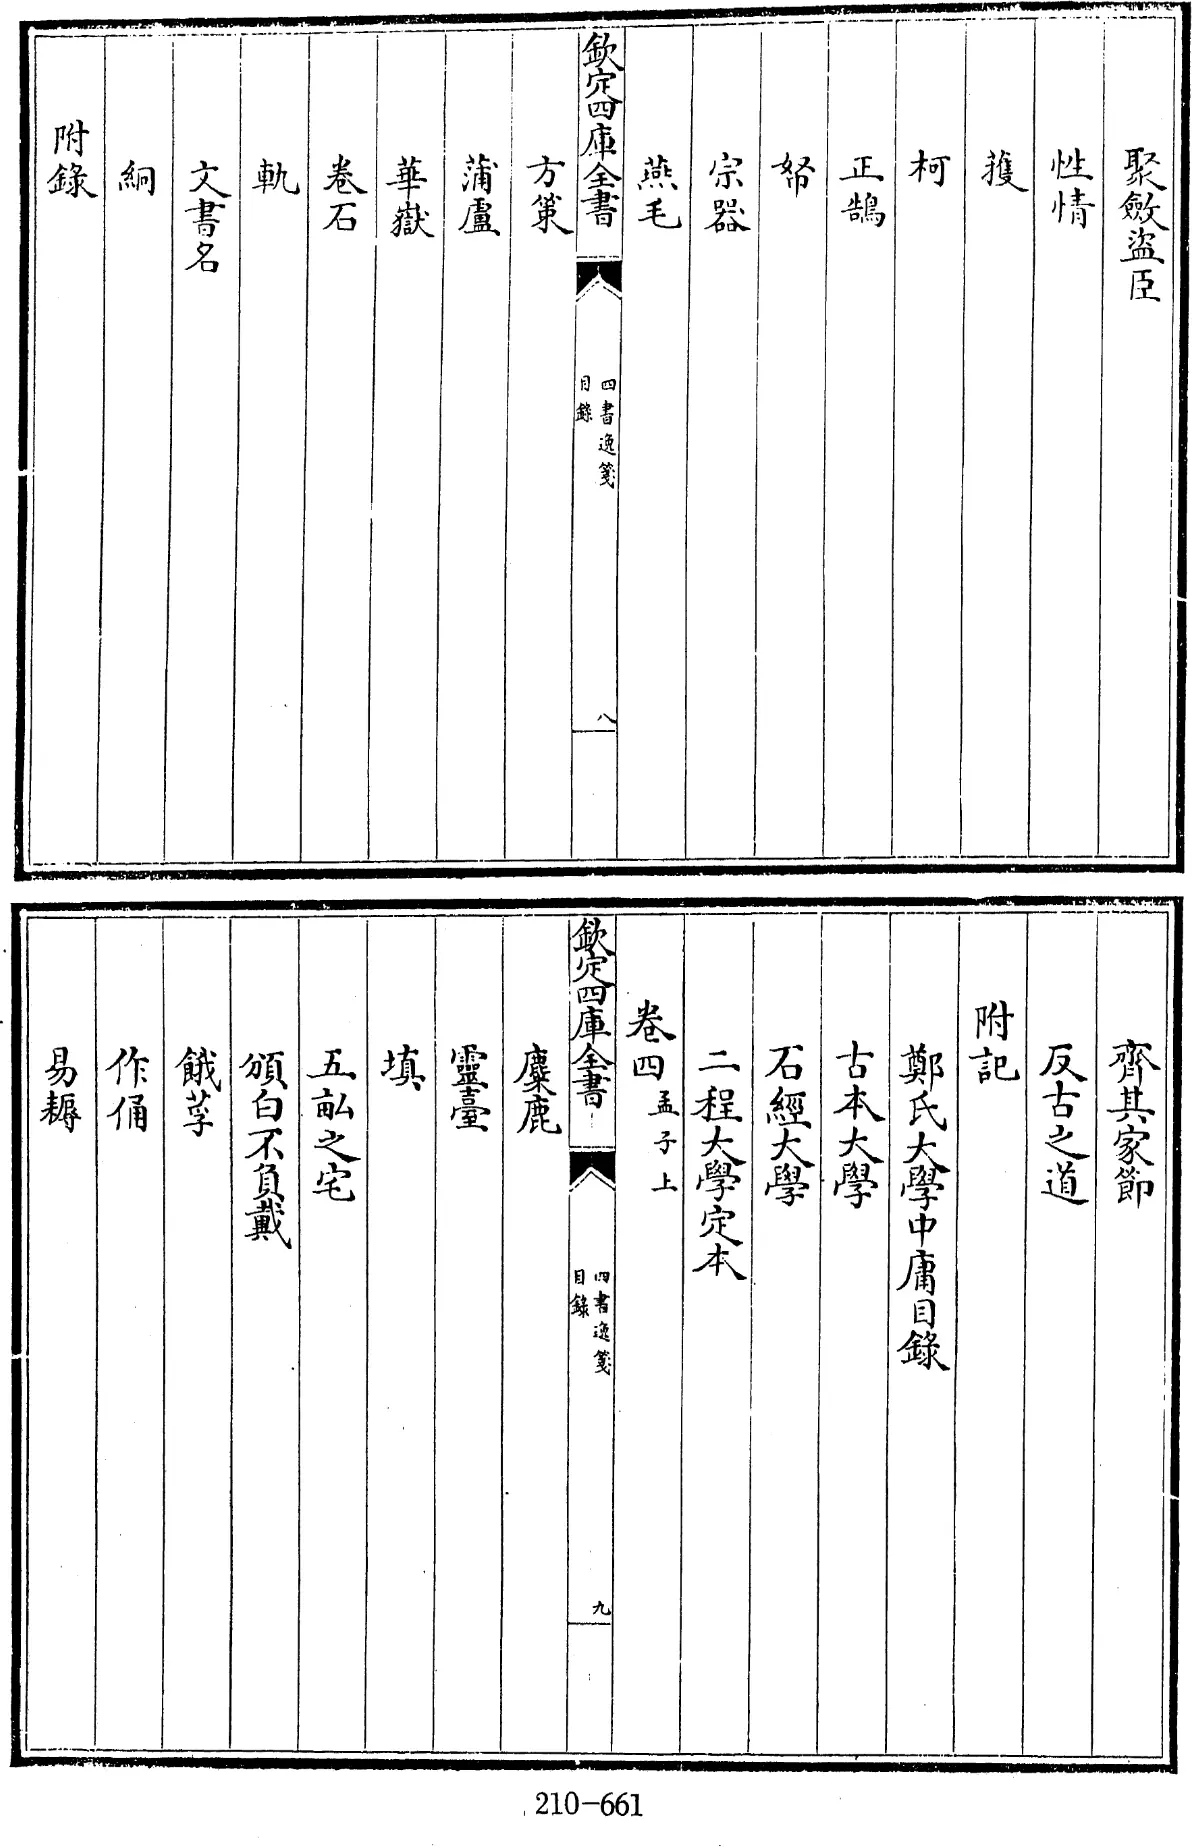 聚斂盜臣
性情
蒦
柯
正鵠
帑
宗器
燕毛
欽定四庫全書
四書逸箋
目錄
八
方策
蒲盧
華嶽
卷石
軌
文書名
絅
附錄
齊其家節
反古之道
附記
鄭氏大學中庸目錄
古本大學
石經大學
二程大學定本
卷四 孟子上
欽定四庫全書
四書逸箋
目錄
九
麋鹿
靈臺
填
五畝之宅
頒白不負戴
餓莩
作俑
易耨
210-661